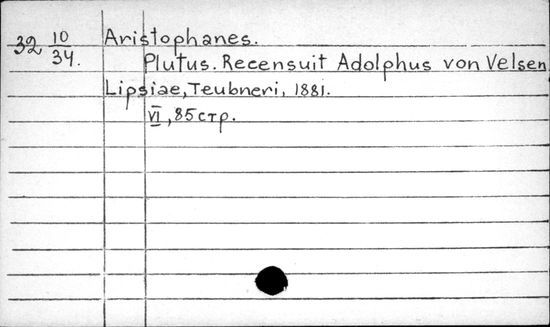 32 10/34.
Aristophanes.
Plutus. Recensuit Adolphus von Velsen
Lipsiae, Teubneri, 1881.
VI, 85 стр.